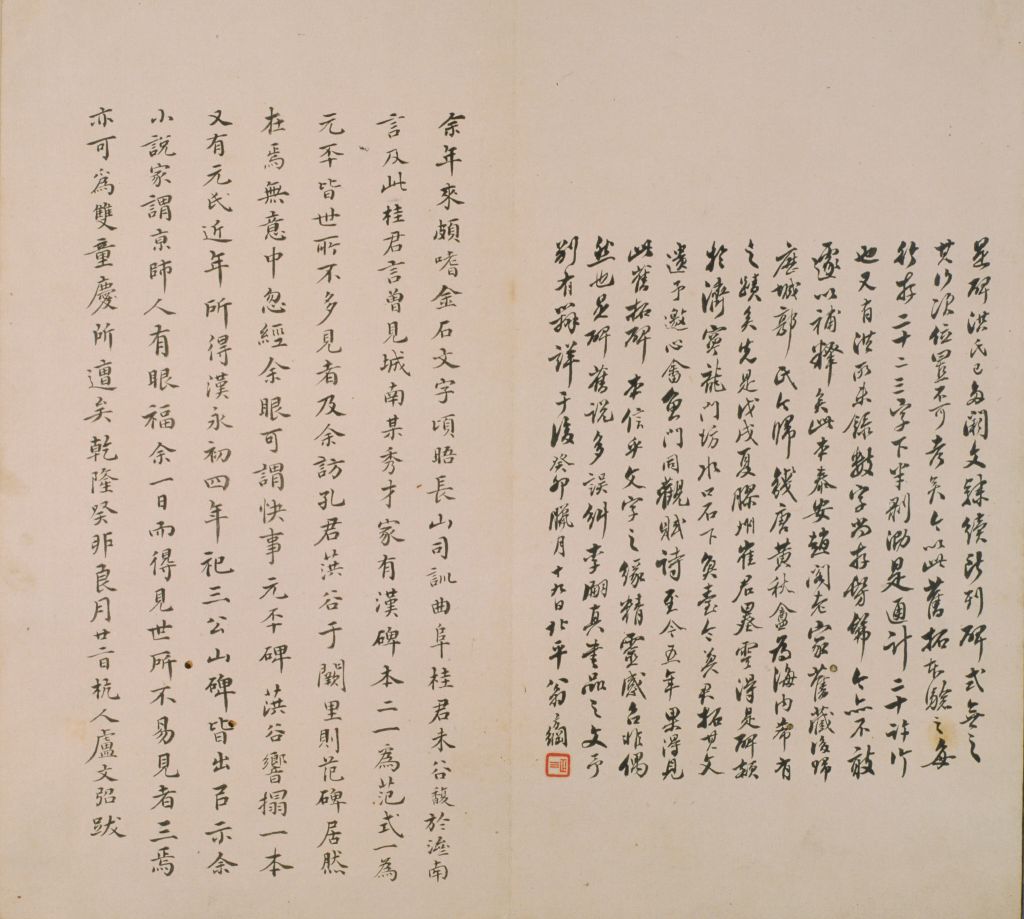 是碑洪氏已多闕文隸續所列碑式無之
其行次位置不可考矣今以此舊拓本驗之每
行存二十二三字下半剥泐是通計二十許行
也又有洪所未錄數字尚存髣髴今亦不敢
遽以補釋矣此本泰安趙閣老家舊藏後歸
歷城郭氏今歸錢唐黄秋盦為海内希有
之蹟矣先是戊戌夏膠州崔君墨雲得是碑額
於濟寧龍門坊水口石下負臺今英君拓其文
遺予邀心畬魚門同觀賦詩至今五年果得見
此舊拓碑本信乎文字之緣精靈感召非偶
然也是碑舊説多誤糾李嗣真書品之文予
別有辯詳于後癸卯臘月十九日北平翁方綱
余年來頗嗜金石文字頃晤長山司訓曲阜桂君未谷馥於濟南
言及此桂君言曽見城南某秀才家有漢碑本二一為范式一為
元丕皆世所不多見者及余訪孔君葓谷于闕里則范碑居然
在焉無意中忽經余眼可謂快事元丕碑葓谷響搨一本
又有元氏近年所得漢永初四年祀三公山碑皆出㠯示余
小說家謂京師人有眼福余一日而得見世所不易見者三焉
亦可為雙童慶所遭矣乾隆癸卯良月廿二日杭人盧文弨跋